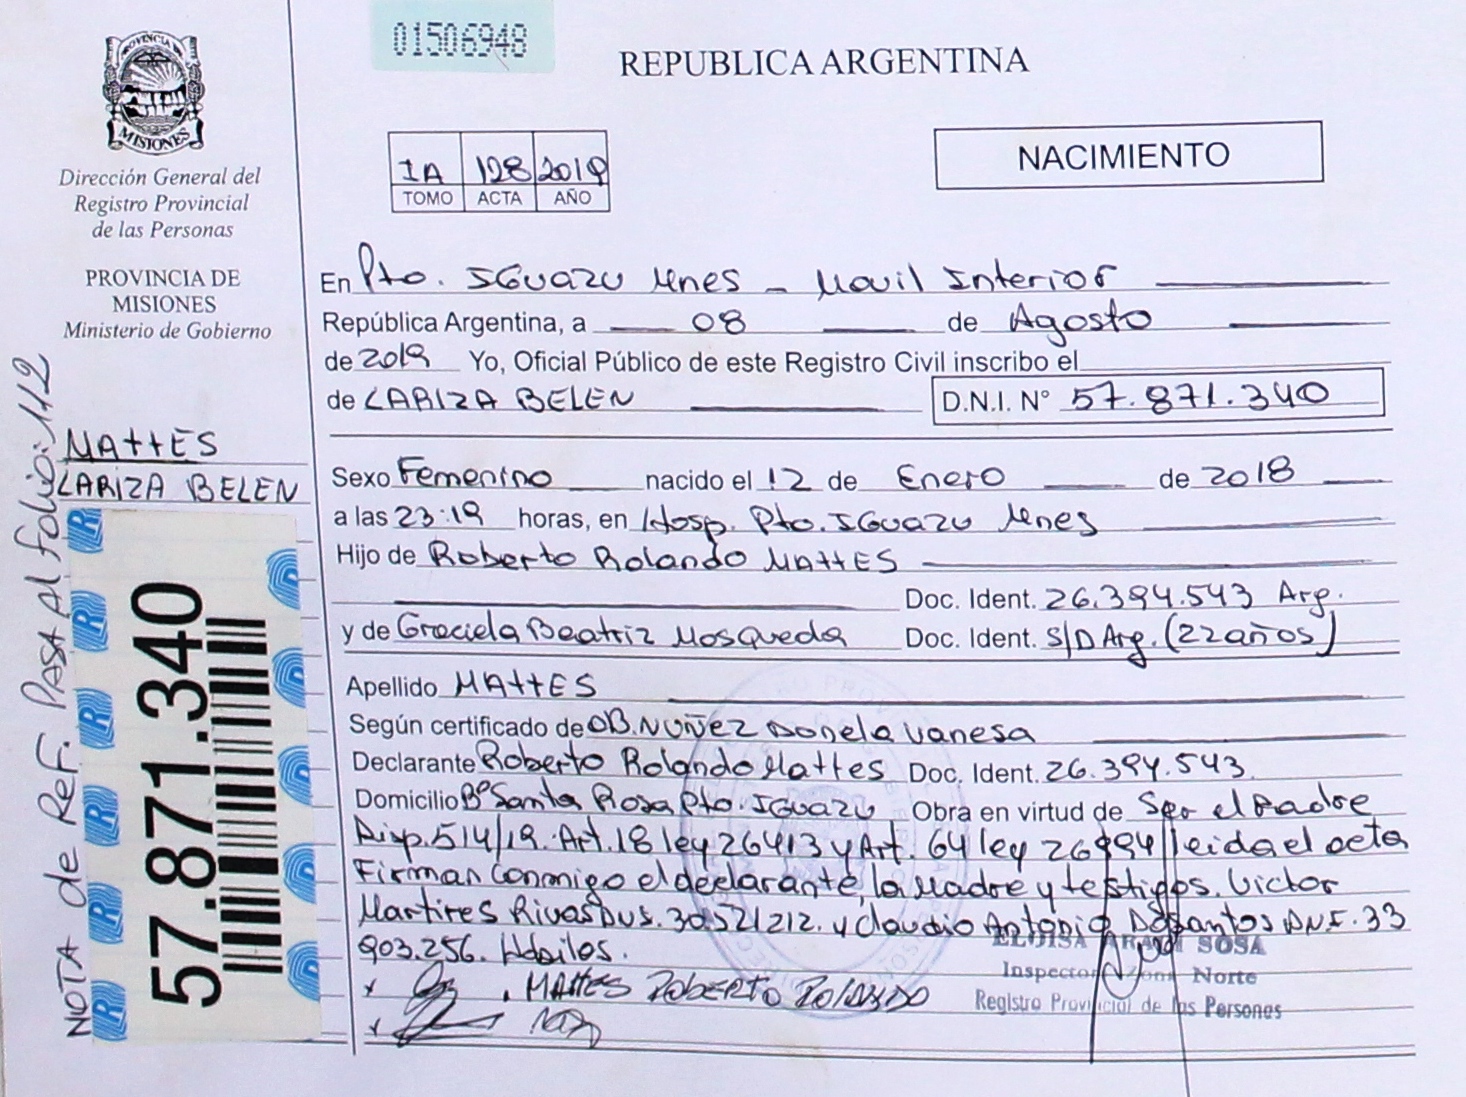 01506948
REPUBLICA ARGENTINA
PROVINCIA
MISIONES
Dirección General del
Registro Provincial
de las Personas
PROVINCIA DE
MISIONES
Ministerio de Gobierno
IA 128 2019
TOMO ACTA AÑO
NACIMIENTO
En Pto. IGUAZU Mnes - Movil Interior
República Argentina, a 08 de Agosto
de 2019 Yo, Oficial Público de este Registro Civil inscribo el
de LARIZA BELEN D.N.I. N° 57.871.340
MATTES
LARIZA BELEN
NOTA de Ref. PASA Al folio: 112
57.871.340
Sexo Femenino nacido el 12 de Enero de 2018
a las 23:19 horas, en Hosp. Pto. IGUAZU Mnes
Hijo de Roberto Rolando MATTES
Doc. Ident. 26.394.543 Arg.
y de Graciela Beatriz Mosqueda Doc. Ident. S/D Arg. (22 años)
Apellido MATTES
Según certificado de OB. NUÑEZ Vanesa
Declarante Roberto Rolando Mattes Doc. Ident. 26.394.543
Domicilio B° Santa Rosa Pto. IGUAZU Obra en virtud de Ser el Padre
Disp. 514/19. Art. 18 ley 26413 y Art. 64 ley 26994 leida el acta
Firman Conmigo el declarante, la Madre y testigos. Victor
Martires Rivas 30.521212. y Claudio Antonio Dosantos DNI. 33
903.256. Habiles.
x MATTES ROBERTO ROLANDO
x
ELOISA SOSA
Inspector Zona Norte
Registro Provincial de las Personas